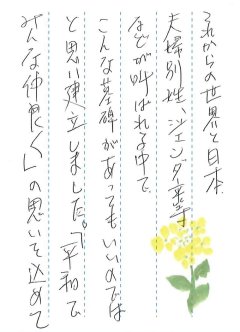 これからの世界と日本
夫婦別姓、ジェンダー等
などが叫ばれる中で、
こんな墓碑があってもいいのでは
と思い建立しました。「平和で
みんな仲良く」の思いを込めて